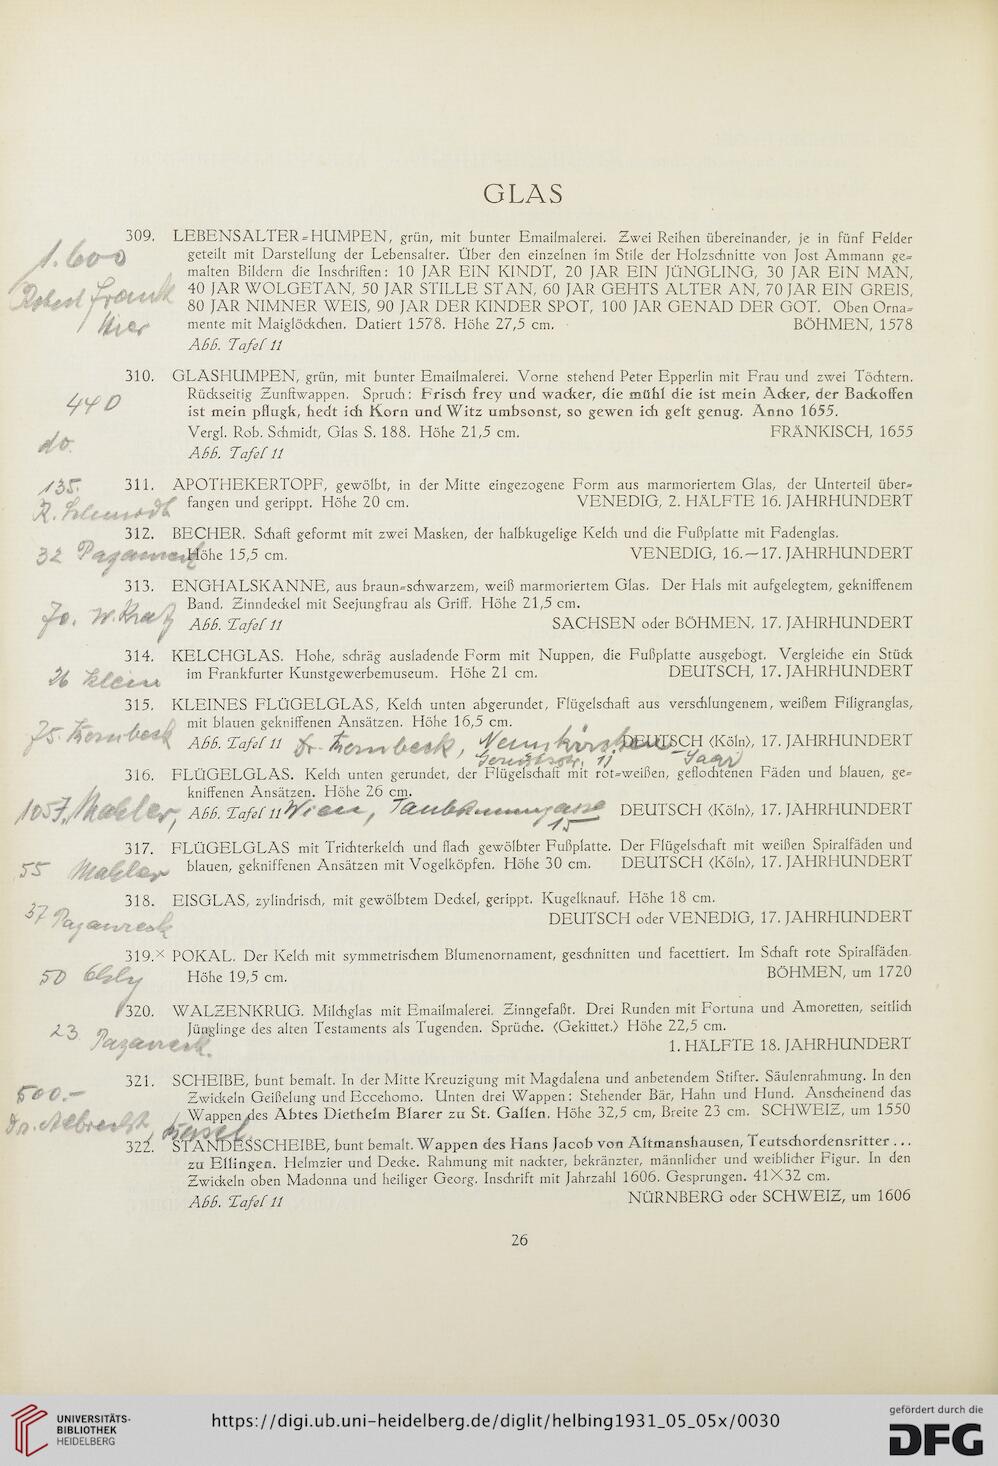 GLAS
309. LEBENSALTER-HUMPEN, grün, mit bunter Emailmalerei. Zwei Reihen übereinander, je in fünf Felder
1.600
geteilt mit Darstellung der Lebensalter. Über den einzelnen im Stile der Holzschnitte von Jost Ammann ge-
malten Bildern die Inschriften: 10 JAR EIN KINDT, 20 JAR EIN JÜNGLING, 30 JAR EIN MAN,
Robert Frank
40 JAR WOLGETAN, 50 JAR STILLE STAN, 60 JAR GEHTS ALTER AN, 70 JAR EIN GREIS,
80 JAR NIMNER WEIS, 90 JAR DER KINDER SPOT, 100 JAR GENAD DER GOT. Oben Orna-
Hier
mente mit Maiglöckchen. Datiert 1578. Höhe 27,5 cm. BÖHMEN, 1578
Abb. Tafel 11
310. GLASHUMPEN, grün, mit bunter Emailmalerei. Vorne stehend Peter Epperlin mit Frau und zwei Töchtern.
440
Rückseitig Zunftwappen. Spruch: Frisch frey und wacker, die mühl die ist mein Acker, der Backoffen
ist mein pflugk, hedt ich Korn und Witz umbsonst, so gewen ich gelt genug. Anno 1655.
do.
Vergl. Rob. Schmidt, Glas S. 188. Höhe 21,5 cm. FRÄNKISCH, 1655
Abb. Tafel 11
135.
311. APOTHEKERTOPF, gewölbt, in der Mitte eingezogene Form aus marmoriertem Glas, der Unterteil über-
R. Schmidt
fangen und gerippt. Höhe 20 cm. VENEDIG, 2. HÄLFTE 16. JAHRHUNDERT
312. BECHER. Schaft geformt mit zwei Masken, der halbkugelige Kelch und die Fußplatte mit Fadenglas.
32
Höhe 15,5 cm. VENEDIG, 16.—17. JAHRHUNDERT
313. ENGHALSKANNE, aus braun-schwarzem, weiß marmoriertem Glas. Der Hals mit aufgelegtem, gekniffenem
70.
Band. Zinndeckel mit Seejungfrau als Griff. Höhe 21,5 cm.
Abb. Tafel 11 SACHSEN oder BÖHMEN, 17. JAHRHUNDERT
314. KELCHGLAS. Hohe, schräg ausladende Form mit Nuppen, die Fußplatte ausgebogt. Vergleiche ein Stück
26 Klein
im Frankfurter Kunstgewerbemuseum. Höhe 21 cm. DEUTSCH, 17. JAHRHUNDERT
315. KLEINES FLÜGELGLAS, Kelch unten abgerundet, Flügelschaft aus verschlungenem, weißem Filigranglas,
mit blauen gekniffenen Ansätzen. Höhe 16,5 cm.
75.
Abb. Tafel 11 Dr. DEUTSCH (Köln), 17. JAHRHUNDERT
Saar
316. FLÜGELGLAS. Kelch unten gerundet, der Flügelschaft mit rot-weißen, geflochtenen Fäden und blauen, ge-
kniffenen Ansätzen. Höhe 26 cm.
105 Mahler,
Abb. Tafel 11 Wien, DEUTSCH (Köln), 17. JAHRHUNDERT
15
317. FLÜGELGLAS mit Trichterkelch und flach gewölbter Fußplatte. Der Flügelschaft mit weißen Spiralfäden und
55 Mahler
blauen, gekniffenen Ansätzen mit Vogelköpfen. Höhe 30 cm. DEUTSCH (Köln), 17. JAHRHUNDERT
318. EISGLAS, zylindrisch, mit gewölbtem Deckel, gerippt. Kugelknauf. Höhe 18 cm.
37
DEUTSCH oder VENEDIG, 17. JAHRHUNDERT
319.× POKAL. Der Kelch mit symmetrischem Blumenornament, geschnitten und facettiert. Im Schaft rote Spiralfäden.
50
Höhe 19,5 cm. BÖHMEN, um 1720
320. WALZENKRUG. Milchglas mit Emailmalerei. Zinngefaßt. Drei Runden mit Fortuna und Amoretten, seitlich
23
Jünglinge des alten Testaments als Tugenden. Sprüche. (Gekittet.) Höhe 22,5 cm.
1. HÄLFTE 18. JAHRHUNDERT
321. SCHEIBE, bunt bemalt. In der Mitte Kreuzigung mit Magdalena und anbetendem Stifter. Säulenrahmung. In den
500.—
Zwickeln Geißelung und Eccehomo. Unten drei Wappen: Stehender Bär, Hahn und Hund. Anscheinend das
Dr. Albrecht,
Wappen des Abtes Diethelm Blarer zu St. Gallen. Höhe 32,5 cm, Breite 23 cm. SCHWEIZ, um 1550
322. STANDESSCHEIBE, bunt bemalt. Wappen des Hans Jacob von Altmanshausen, Teutschordensritter ...
zu Ellingen. Helmzier und Decke. Rahmung mit nackter, bekränzter, männlicher und weiblicher Figur. In den
Zwickeln oben Madonna und heiliger Georg. Inschrift mit Jahrzahl 1606. Gesprungen. 41×32 cm.
Abb. Tafel 11 NÜRNBERG oder SCHWEIZ, um 1606
26
UNIVERSITÄTS-
BIBLIOTHEK
HEIDELBERG
https://digi.ub.uni-heidelberg.de/diglit/helbing1931_05_05x/0030
gefördert durch die
DFG